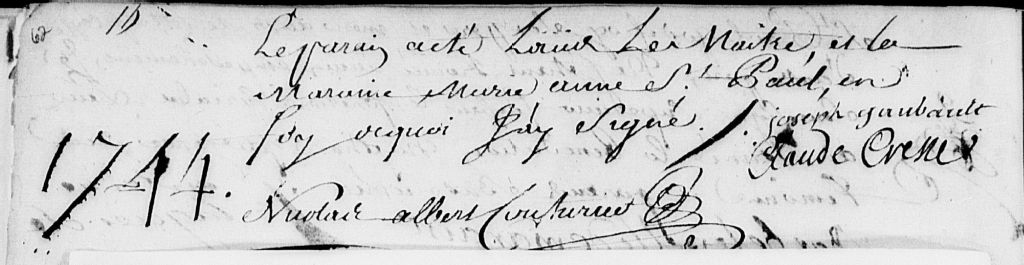 10
Le parain a eté Louis Le Maitre, et la
Maraine Marie anne St. Paul, en
foy de quoi J'ay Signé.
joseph gaubault
Claude Cresse
1744.
Nicolas albert Couturier